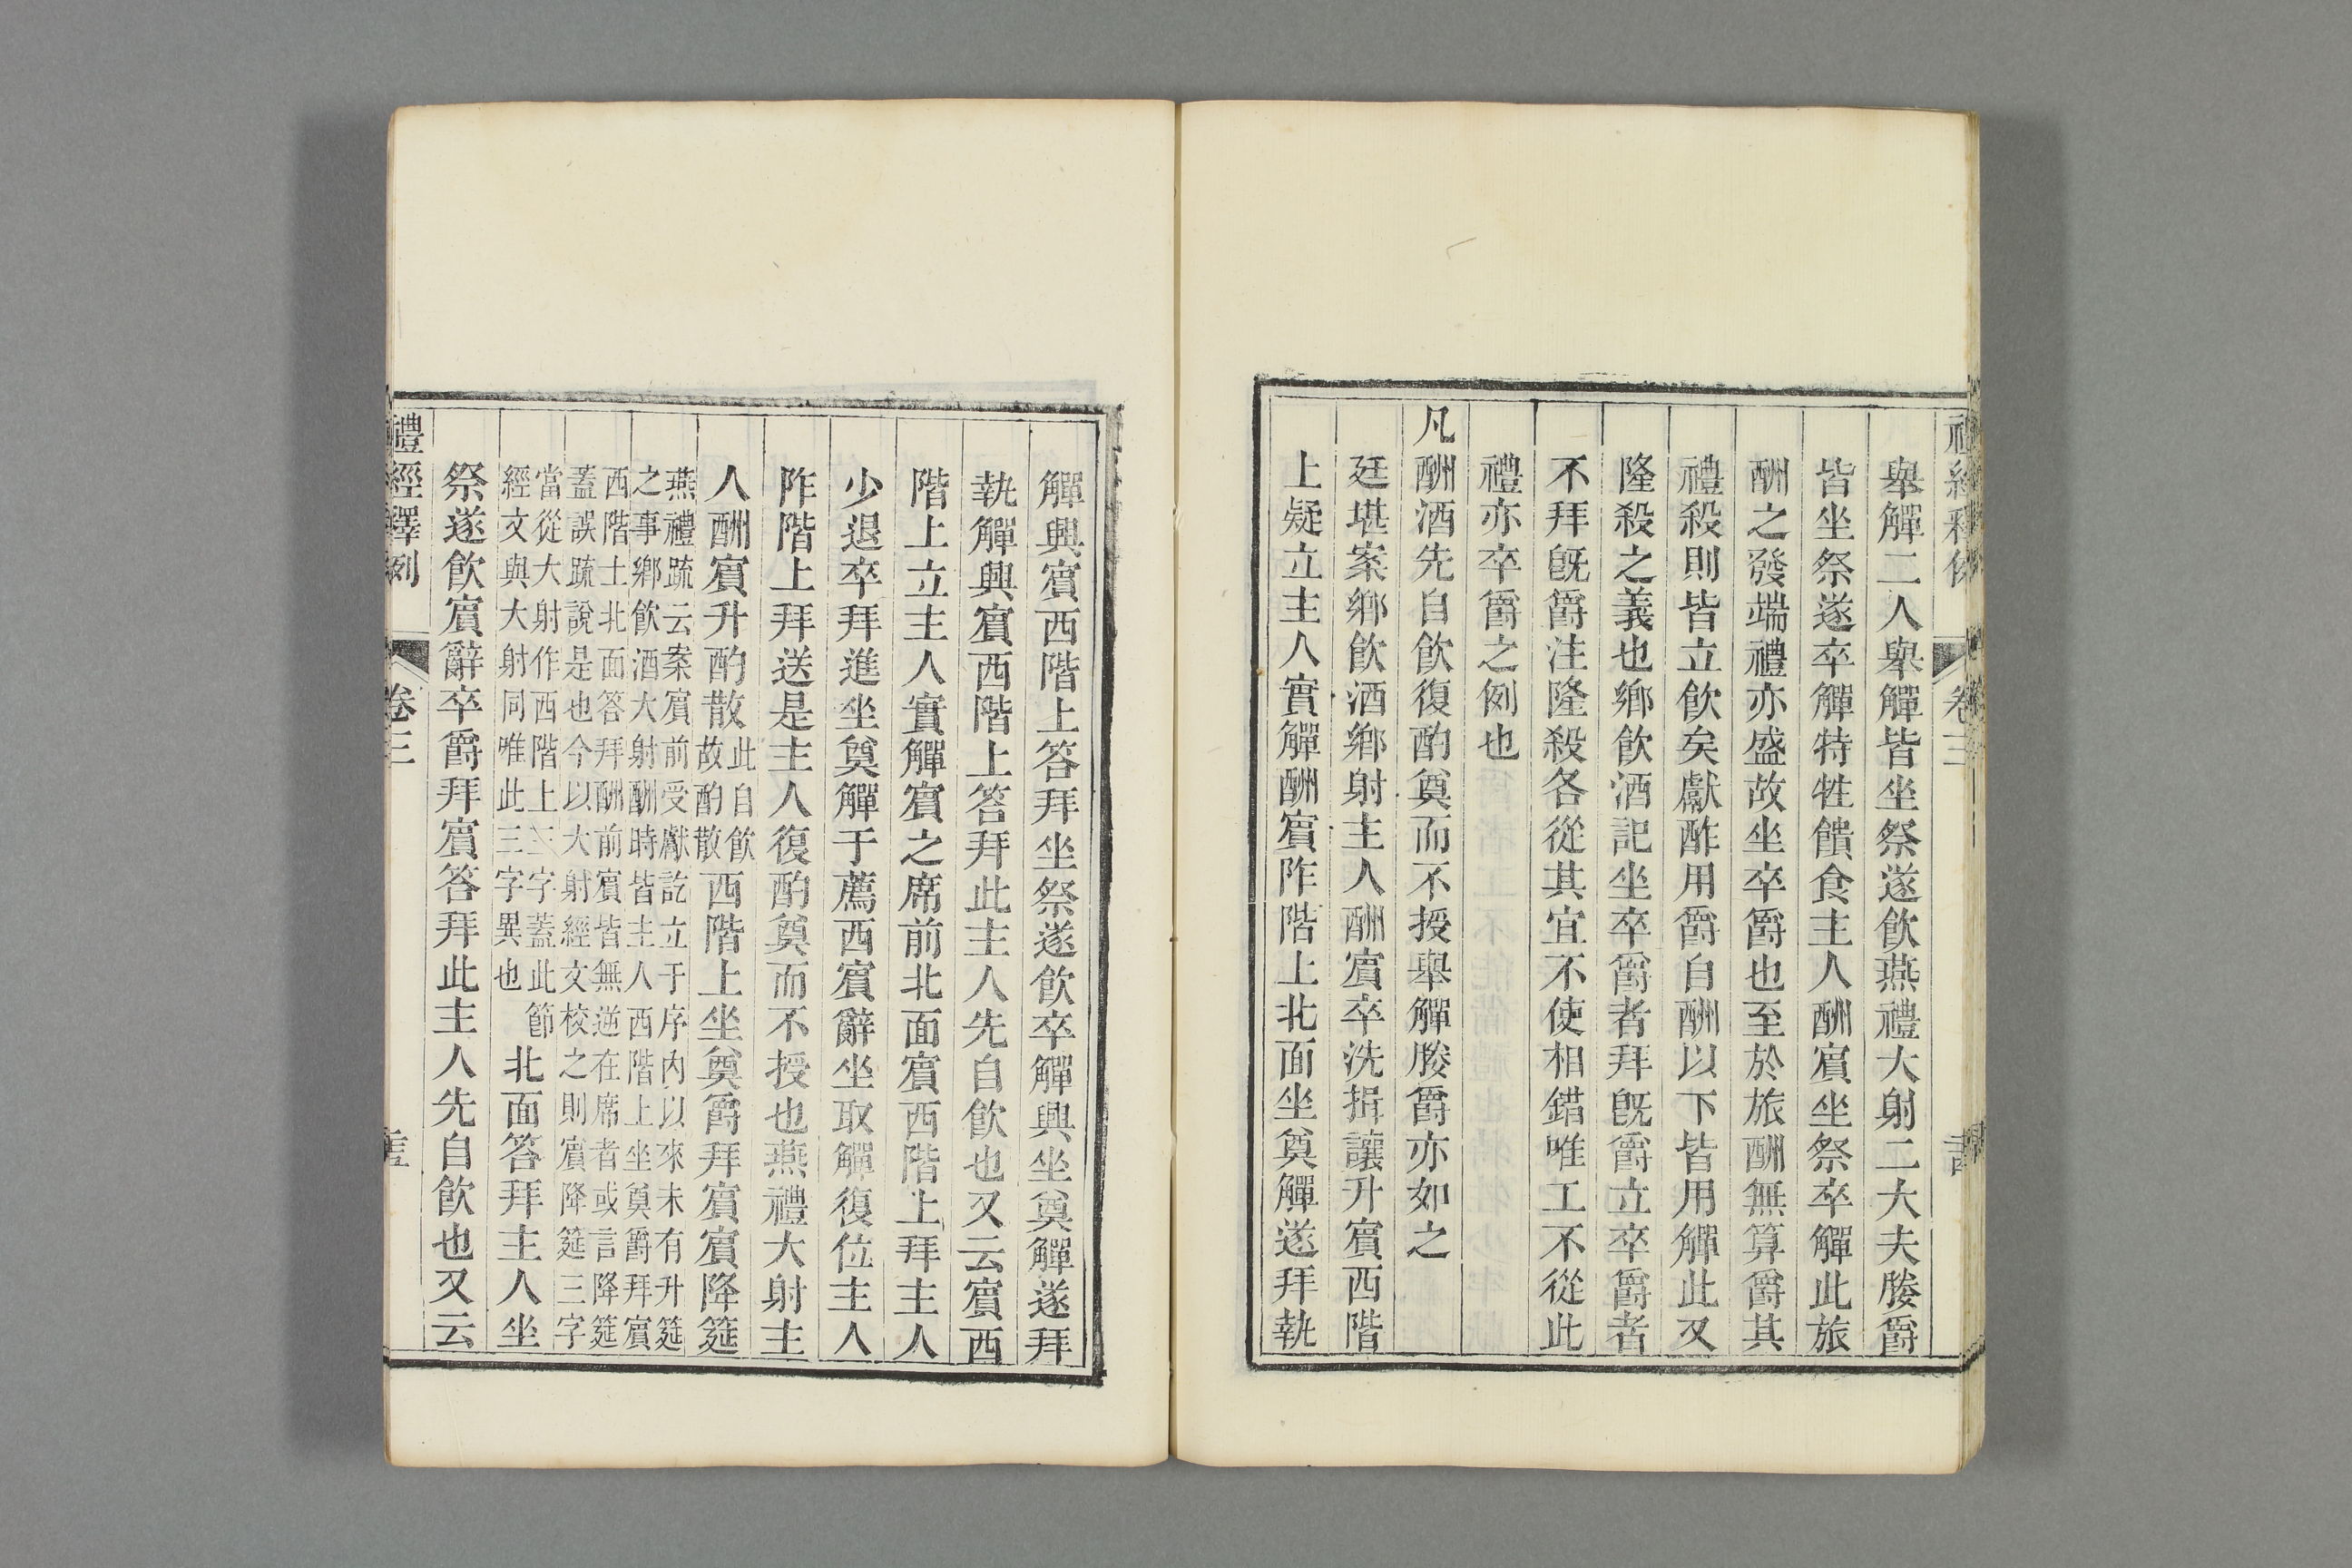 禮經釋例
卷三
舉觶二人舉觶皆坐祭遂飮燕禮大射二大夫媵爵
皆坐祭遂卒觶特牲饋食主人酬賓坐祭卒觶此旅
酬之發端禮亦盛故坐卒爵也至於旅酬無算爵其
禮殺則皆立飮矣獻酢用爵自酬以下皆用觶此又
隆殺之義也鄉飮酒記坐卒爵者拜旣爵立卒爵者
不拜旣爵注隆殺各從其宜不使相錯唯工不從此
禮亦卒爵之例也
凡酬酒先自飮復酌奠而不授舉觶媵爵亦如之
廷堪案鄉飮酒鄉射主人酬賓卒洗揖讓升賓西階
上疑立主人實觶酬賓阼階上北面坐奠觶遂拜執
觶興賓西階上答拜坐祭遂飮卒觶興坐奠觶遂拜
執觶興賓西階上答拜此主人先自飮也又云賓西
階上立主人實觶賓之席前北面賓西階上拜主人
少退卒拜進坐奠觶于薦西賓辭坐取觶復位主人
阼階上拜送是主人復酌奠而不授也燕禮大射主
人酬賓升酌散此自飮故酌散西階上坐奠爵拜賓賓降筵
燕禮疏云案賓前受獻訖立于序內以來未有升筵
之事鄉飮酒大射酬時皆主人西階上坐奠爵拜賓
西階士北面答拜酬前賓皆無逆在席者或言降筵
蓋誤疏說是也今以大射經文校之則賓降筵三字
當從大射作西階上三字蓋此節
經文與大射同唯此三字異也
北面答拜主人坐
祭遂飮賓辭卒爵拜賓答拜此主人先自飮也又云
禮經釋例
卷三